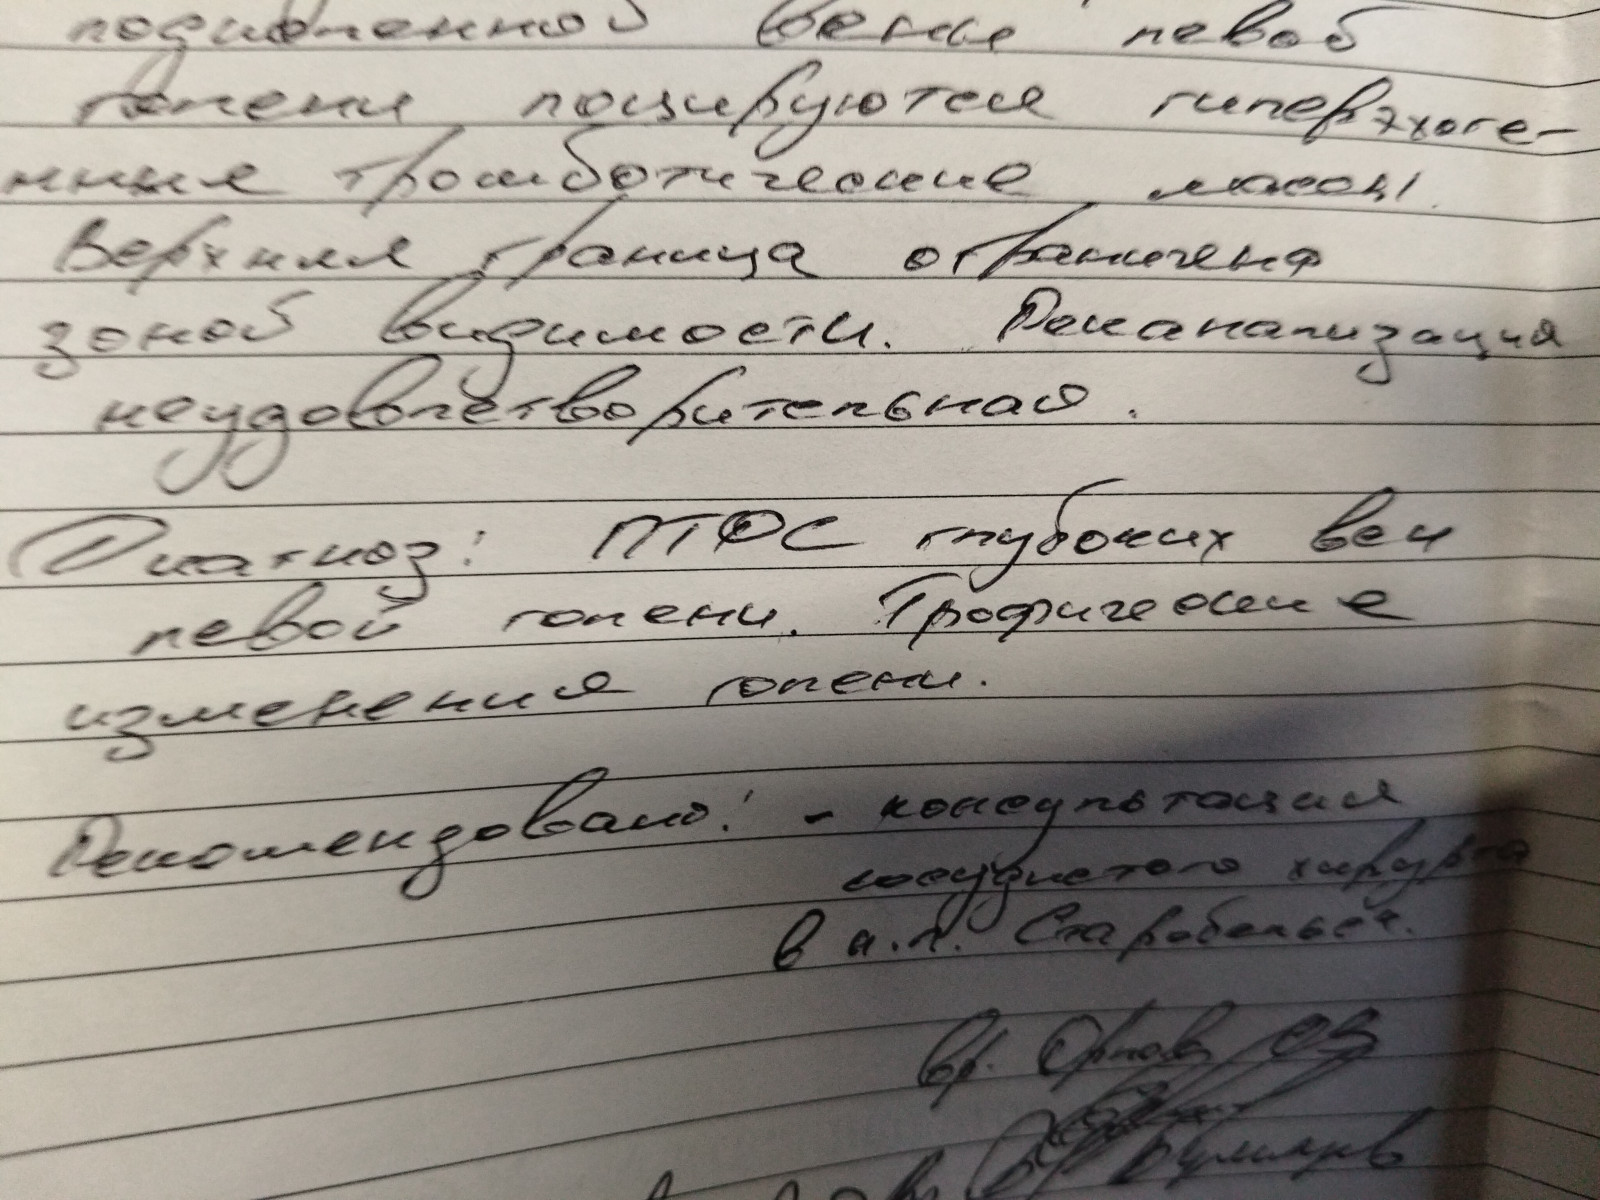 подколенной вены левой
голени лоцируются гиперэхоге-
нные тромботические массы.
Верхняя граница ограничена
зоной видимости. Реканализация
неудовлетворительная.
Диагноз: ПТФС глубоких вен
левой голени. Трофические
изменения голени.
Рекомендовано: - консультация
сосудистого хирурга
в н.п. Старобельск.
вр. Орлов